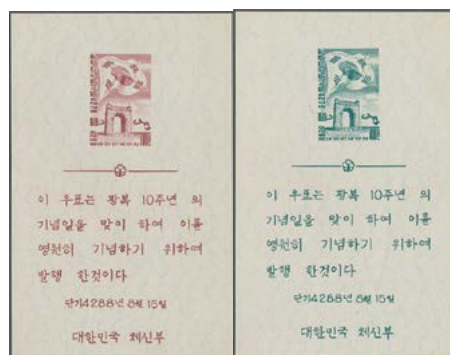 이 우표는 광복 10주년 의
기념일을 맞이 하여 이를
영원히 기념하기 위하여
발행 한것이다
단기4288년 8월 15일
대한민국 체신부
이 우표는 광복 10주년 의
기념일을 맞이 하여 이를
영원히 기념하기 위하여
발행 한것이다
단기4288년 8월 15일
대한민국 체신부